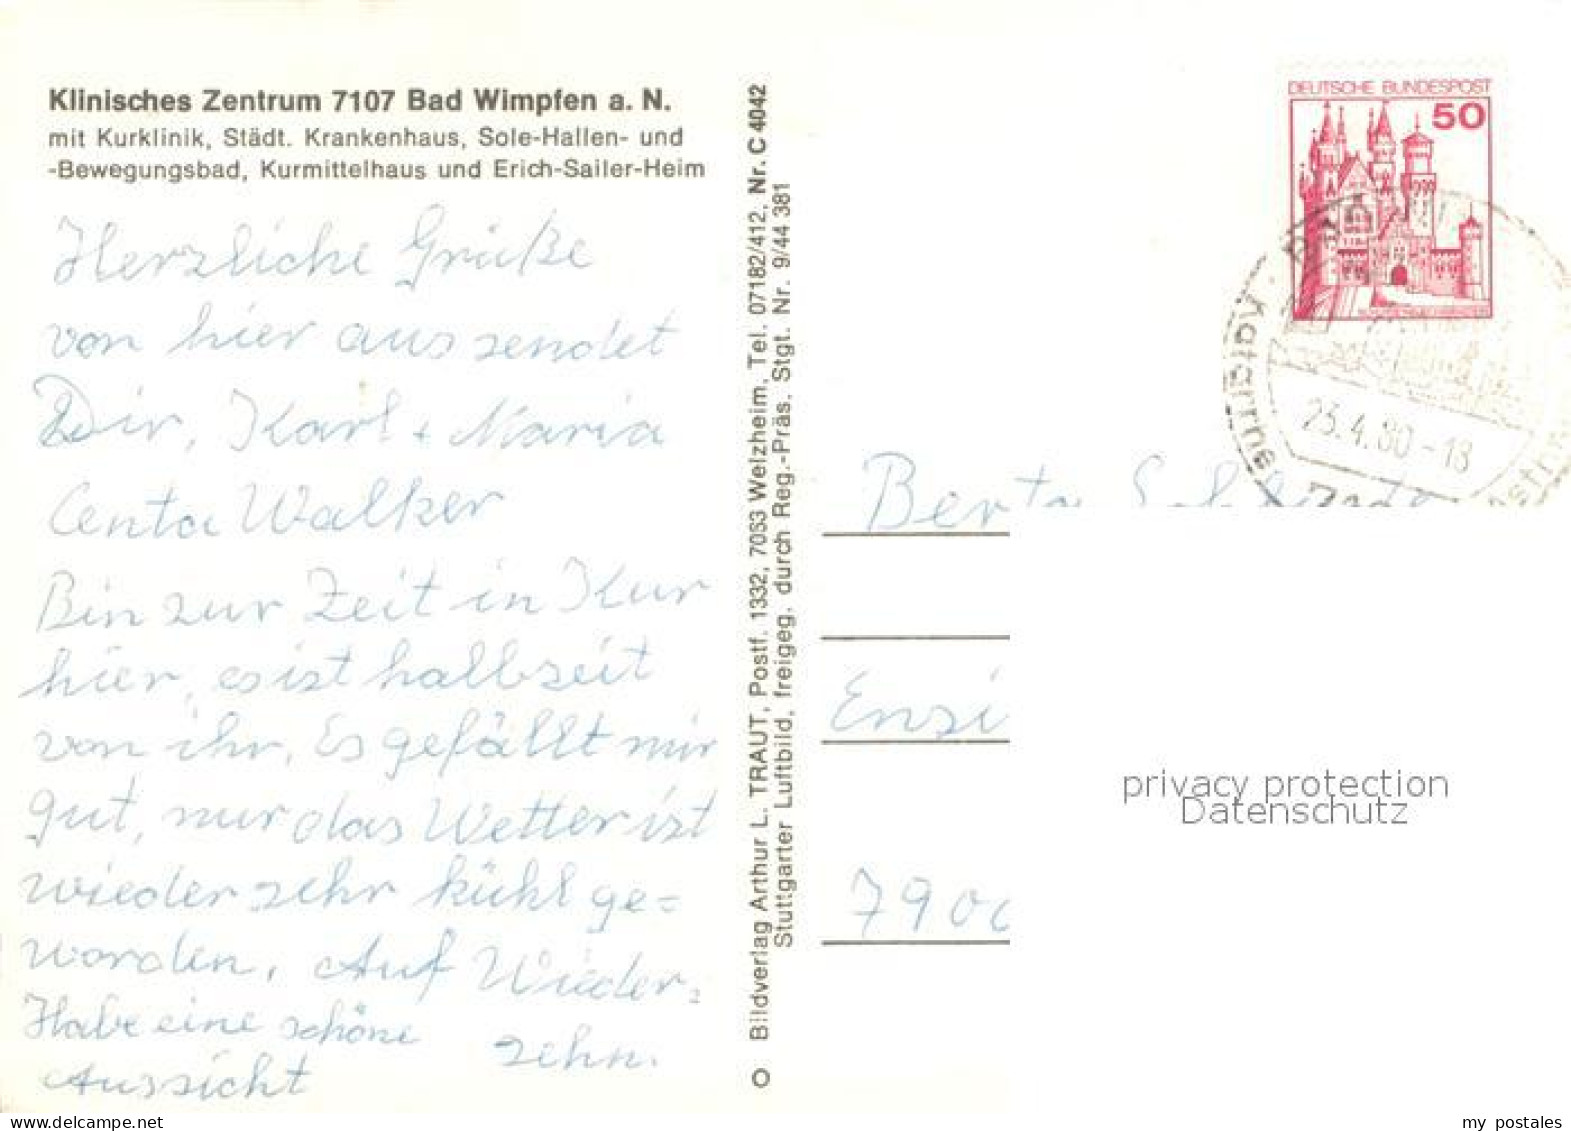 Klinisches Zentrum 7107 Bad Wimpfen a. N.
mit Kurklinik, Städt. Krankenhaus, Sole-Hallen- und
-Bewegungsbad, Kurmittelhaus und Erich-Sailer-Heim
Herzliche Grüße
von hier aus sendet
Dir, Karl + Maria
Centa Walker
Bin zur Zeit in Kur
hier, es ist halbzeit
von ihr. Es gefällt mir
gut, nur das Wetter ist
wieder sehr kühl ge=
worden. Auf Wieder=
sehn.
Habe eine schöne
Aussicht
Bildverlag Arthur L. TRAUT, Postf. 1332, 7063 Welzheim, Tel. 07182/412, Nr. C 4042
Stuttgarter Luftbild, freigeg. durch Reg.-Präs. Stgt. Nr. 9/44 381
DEUTSCHE BUNDESPOST
50
23.4.80-18
Berta
Ensi
790
privacy protection
Datenschutz
my postales